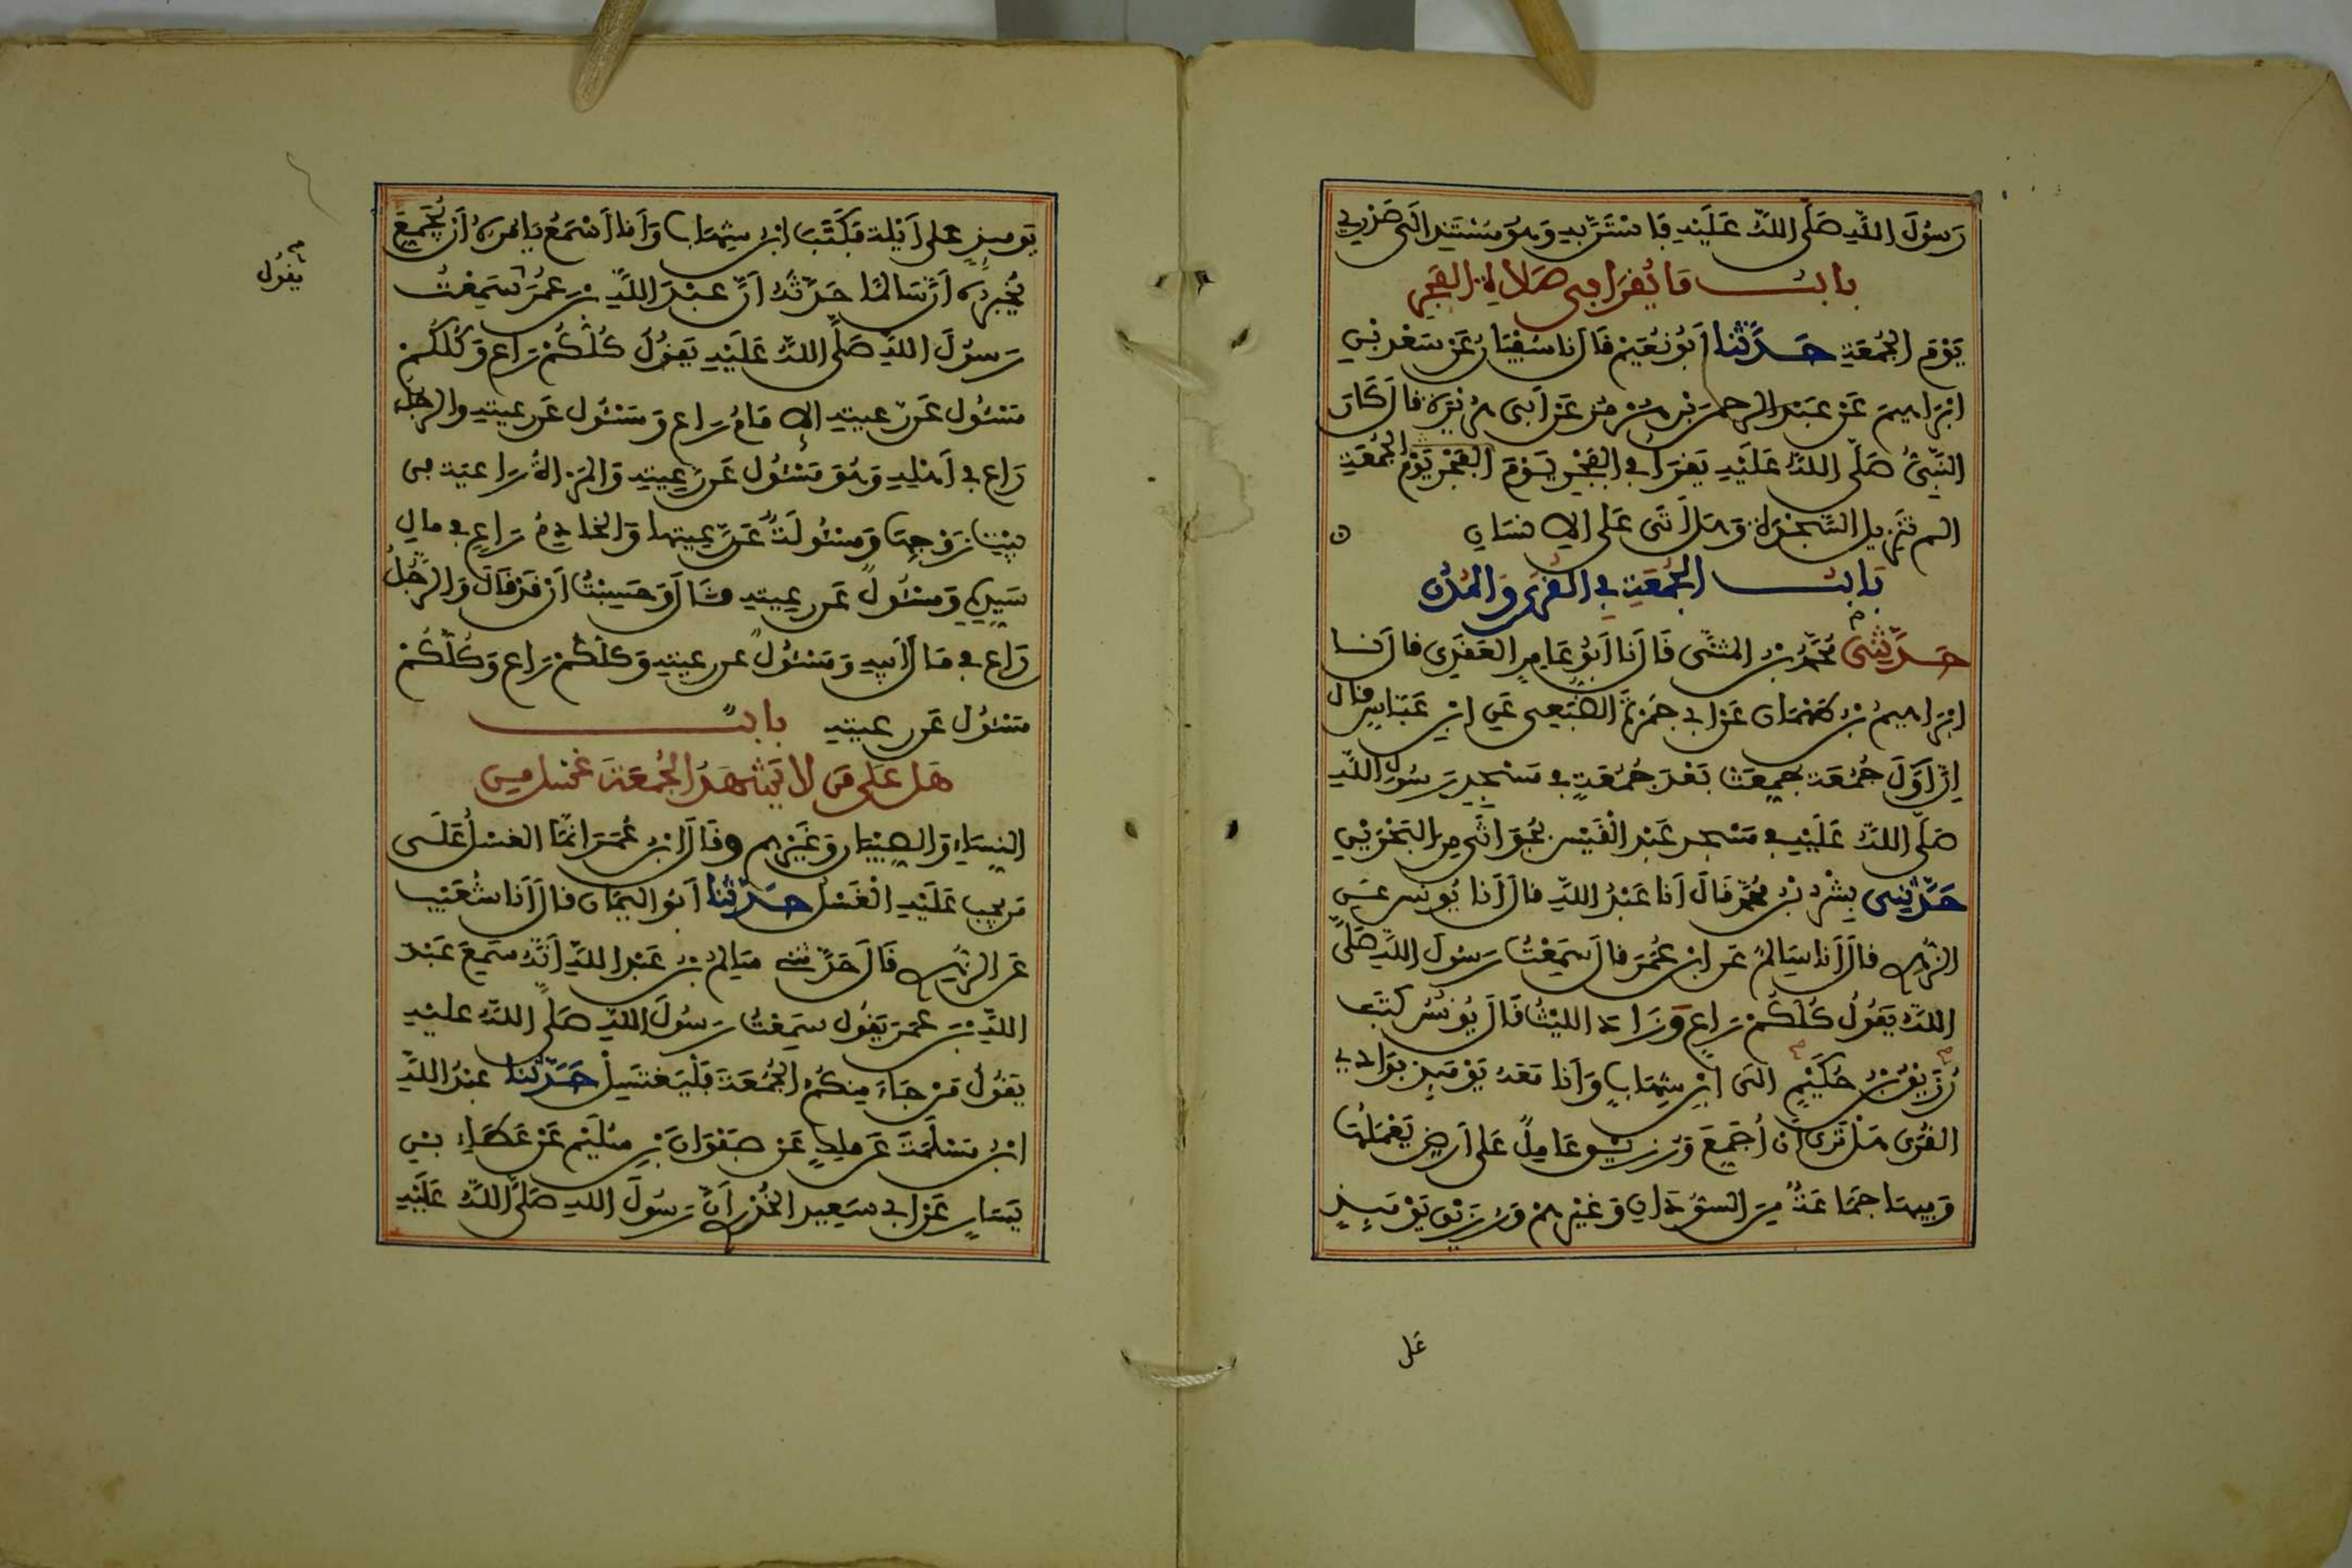 رَسُولَ اللَّهِ صَلَّى اللَّهُ عَلَيْهِ فَاسْتَنَّ بِهِ وَهُوَ مُسْتَنِدٌ إلَى صَدْرِي
بابُ مَا يُقرَأ فِي صَلَاةِ الفَجْرِ
يَوْمَ الجُمُعَةِ حَدَّثَنَا أَبُو نُعَيْم قَالَ نا سُفْيَانُ عَنْ سَعْدِ بْنِ
ابْرَاهِيمَ عَنْ عَبْدِ الرحمَن بْنِ هُرْمُز عَنْ أَبِي هُرَيْرَة قال كَانَ
النَّبِيُّ صَلَّى اللَّهُ عَلَيْهِ يَقْرَأُ فِي الفَجْرِ يَوْمَ الفَجْرِ يَوْمَ الجُمُعَةِ
الم تَنْزِيل السَّجْدَة وَهَل أَتَى عَلَى الإنسَانِ
بَابُ الجُمُعَةِ فِي القُرَى وَالمُدُنِ
حَدَّثَنِي مُحَمَّدُ بْنُ المثنَّى قَالَ نَا أَبُو عَامِرٍ العَقَدِي قال نا
ابْرَاهِيمُ بْنُ طَهْمَان عَنْ أَبِي جَمْرَةَ الضُّبَعِي عَنِ ابْنِ عَبَّاسٍ قال
إِنَّ أَوَّلَ جُمُعَة جُمِّعَتْ بَعْدَ جُمُعَةٍ فِي مَسْجِدِ رَسُولِ اللَّهِ
صَلَّى اللَّهُ عَلَيْهِ فِي مَسْجِدِ عَبْدِ الْقَيْسِ بِجُوَاثَى مِنَ البَحْرَيْنِ
حَدَّثَنِي بِشْرُ بْنُ مُحَمَّد قَالَ أَنا عَبْدُ اللَّهِ قالَ أَنا يُونُسُ عَنِ
الزُّهْرِي قالَ أَنا سَالِمٌ عَنِ ابْنِ عُمَرَ قالَ سَمِعْتُ رَسُولَ اللَّهِ صَلَّى
اللَّهُ يَقُولُ كُلُّكُمْ رَاعٍ وَزَادَ الليْثُ قَالَ يُونُسُ كَتَبَ
رُزَيْقُ بْنُ حُكَيْمٍ إلَى ابْنِ شِهَابٍ وَأَنا مَعَهُ يَوْمَئِذٍ بِوَادِي
القُرَى هَلْ تَرَى أَنْ أُجَمِّعَ وَرُزَيْقٌ عَامِلٌ عَلى أَرْضٍ يَعْمَلُهَا
وَفِيهَا جَمَاعَةٌ مِنَ السُّودَانِ وَغَيْرِهِمْ وَرُزَيْق يَوْمَئِذٍ
عَلَى
يَوْمَئِذٍ عَلى أَيْلَة فَكَتَبَ ابْنُ شِهَابٍ وَأَنا أَسْمَعُ يَامُرُهُ أَنْ يُجَمِّعَ
يُخْبِرُهُ أَنَّ سَالِمًا حَدَّثَهُ أَنَّ عَبْدَ اللَّهِ بْنَ عُمَرَ سَمِعْتُ
يقُولُ
رَسُولَ اللَّهِ صَلَّى اللَّهُ عَلَيْهِ يَقُولُ كُلُّكُمْ رَاعٍ وَكُلُّكُمْ
مَسْئُول عَن رعيتِهِ الإمَامُ رَاعٍ وَمَسْئُول عَن رعيتِهِ والرجُلُ
رَاعٍ فِي أَهْلِهِ وَهُوَ مَسْئُول عَن رَعِيتِهِ وَالمَرْأةُ رَاعية في
بَيْتِ زَوْجِهَا وَمَسْئُولَةٌ عَن رَعِيتها وَالخادِمُ رَاعٍ فِي مالِ
سَيِّدِهِ وَمَسْئُولٌ عَن رعيتِهِ قَالَ وَحَسِبْتُ أَنْ قَدْ قَالَ وَالرَّجُلُ
رَاعٍ فِي مَالِ أَبِيهِ وَمَسْئُولٌ عن رعيتِهِ وَكُلُّكُمْ رَاعٍ وَكُلُّكُمْ
مَسْئُول عَن رعيتِهِ بابٌ
هَل عَلَى مَن لا يَشْهَدُ الجُمُعَةَ غُسْل مِنَ
النِّسَاءِ وَالصِّبْيَانِ وَغَيْرِهِم وقَالَ ابْن عُمَرَ انمَّا الغسْلُ عَلَى
مَن يجِب عَلَيْهِ الْغُسْل حَدَّثَنَا أَبُو اليَمَان قالَ أَنا شُعَيْب
عَنِ الزُّهْرِي قَالَ حَدَّثَنِي سَالِمُ بْنُ عَبْدِ اللَّهِ أَنَّهُ سَمِعَ عَبْدَ
اللَّهِ بْنَ عُمَرَ يَقُول سَمِعْتُ رَسُولَ اللَّهِ صَلَّى اللَّهُ عليْهِ
يَقُولُ مَنْ جَاءَ مِنكُمْ الجُمُعَةَ فَلْيَغْتَسِلْ حَدَّثَنَا عَبْدُ اللَّهِ
ابْنُ مَسْلَمَةَ عَن مَلِكٍ عَنْ صَفْوَانَ بْنِ سُلَيْم عَنْ عَطَاءِ بْنِ
يَسَارٍ عَنْ أَبِي سَعِيدٍ الخُدْرِي أَنَّ رَسُولَ اللهِ صَلَّى اللَّهُ عَلَيْهِ